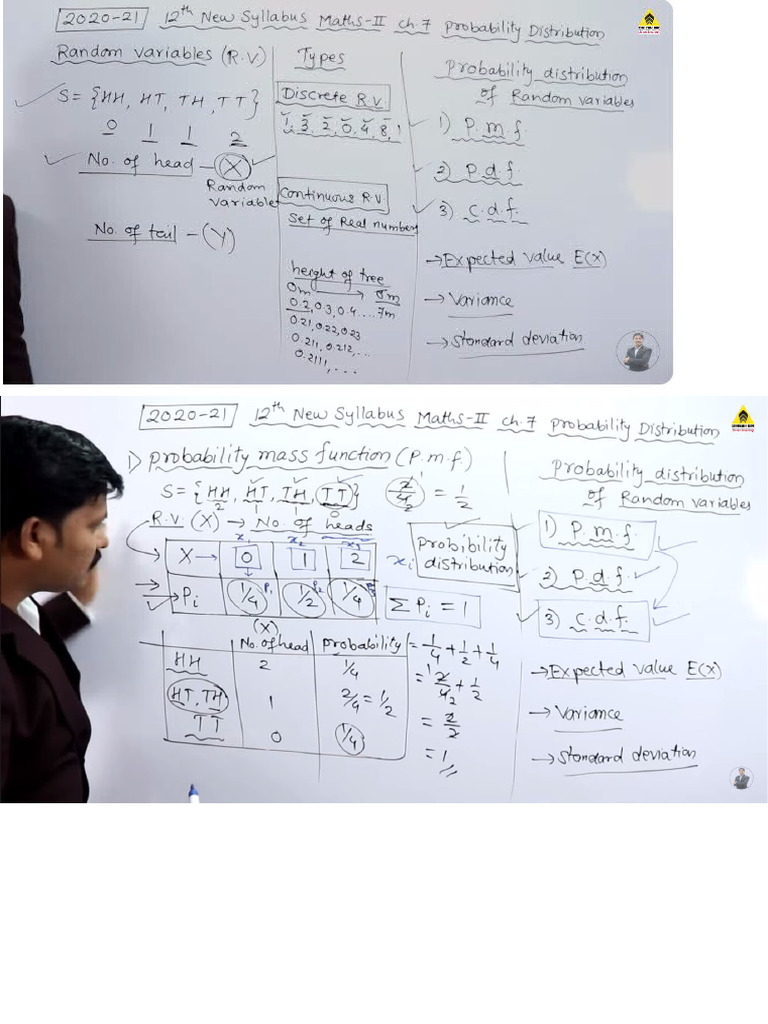 2020-21 12th New Syllabus Maths-II ch.7 Probability Distribution
Random variables (R.V)
S = {HH, HT, TH, TT}
0 1 1 2
No. of head - (X)
Random
variable
No. of tail - (Y)
Types
Discrete R.V.
1, 3, 2, 0, 4, 8, 1
Continuous R.V.
Set of Real number
height of tree
0m → 5m
0.2, 0.3, 0.4 .... 7m
0.21, 0.22, 0.23
0.211, 0.212, ...
0.2111, ...
Probability distribution
of Random variables
1) P.m.f.
2) P.d.f.
3) C.d.f.
→ Expected value E(X)
→ Variance
→ Standard deviation
2020-21 12th New Syllabus Maths-II ch.7 Probability Distribution
1) Probability mass function (P.m.f.)
S = {HH, HT, TH, TT} 2/4 = 1/2
2 1 1 0
R.V. (X) → No. of heads
x1 x2 x3
X → 0 1 2
Pi 1/4 1/2 1/4
xi
Probibility
distribution
Σ Pi = 1
(X)
No. of head Probability
HH 2 1/4
HT, TH 1 2/4 = 1/2
TT 0 1/4
= 1/4 + 1/2 + 1/4
= 2/4 + 1/2
= 2/2
= 1
Probability distribution
of Random variables
1) P.m.f.
2) P.d.f.
3) C.d.f.
→ Expected value E(X)
→ Variance
→ Standard deviation